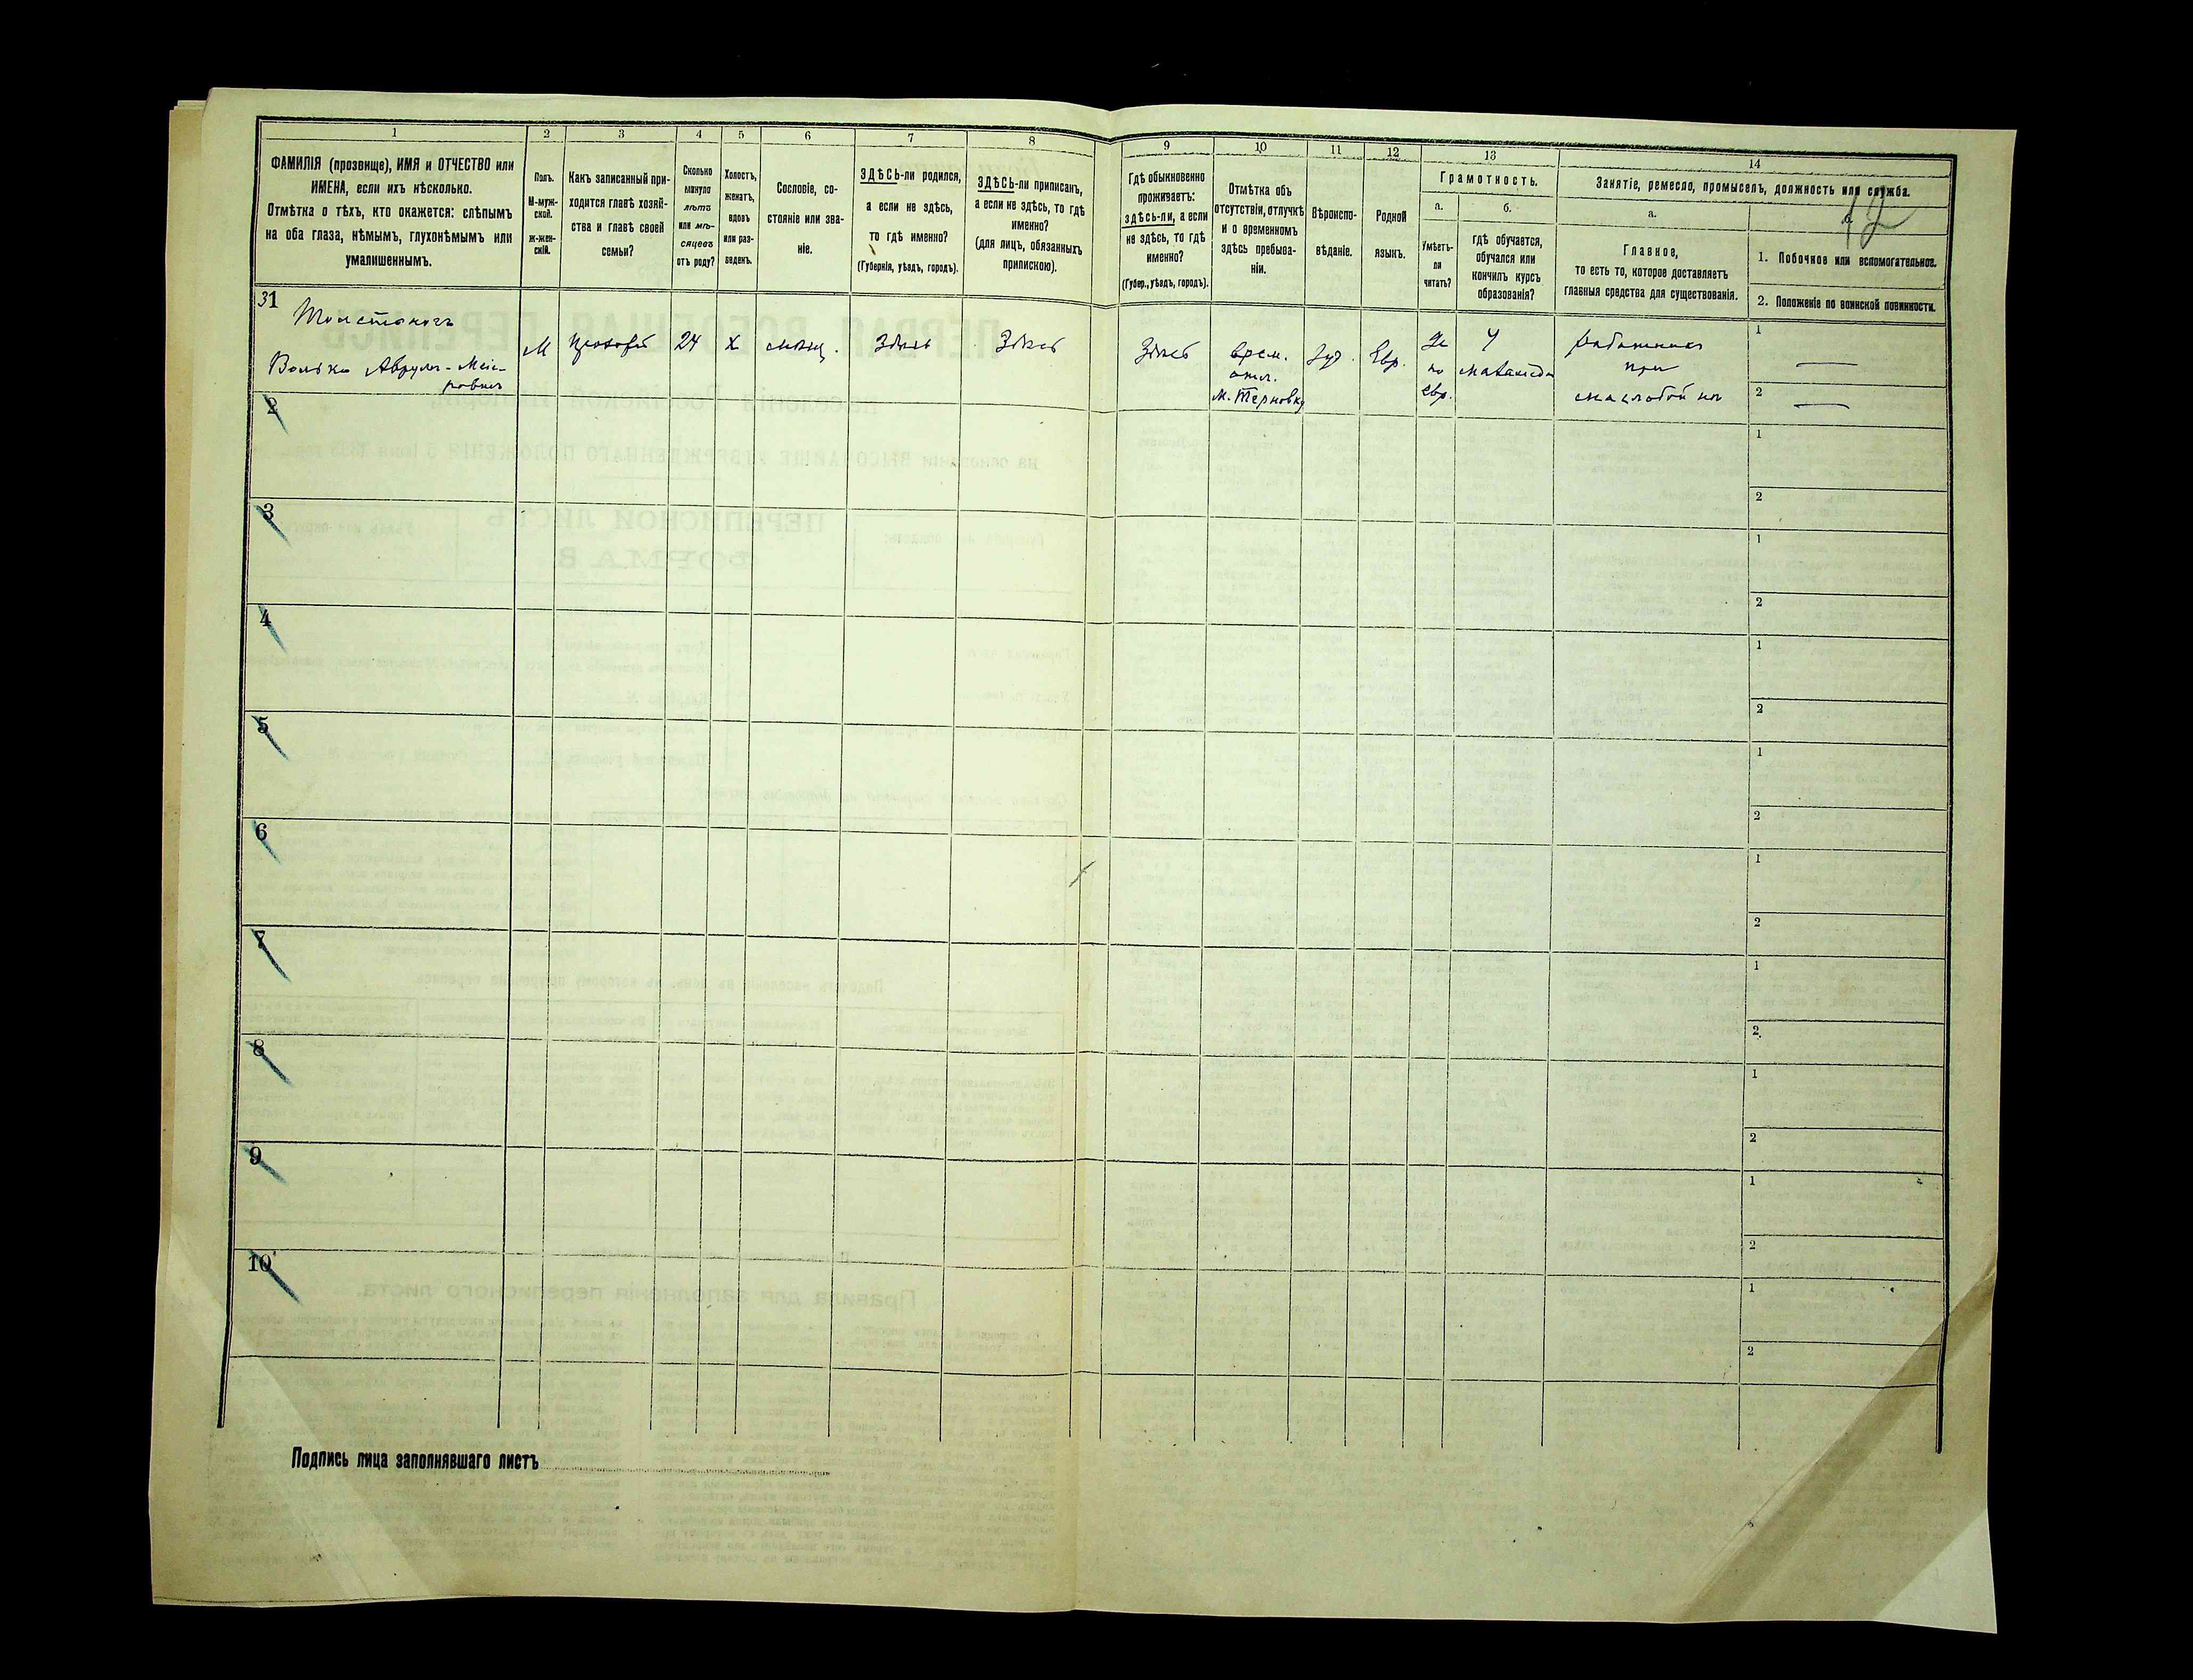 1
2
3
4
5
6
7
8
9
10
11
12
13
14
ФАМИЛІЯ (прозвище), ИМЯ и ОТЧЕСТВО или
ИМЕНА, если ихъ нѣсколько.
Отмѣтка о тѣхъ, кто окажется: слѣпымъ
на оба глаза, нѣмымъ, глухонѣмымъ или
умалишеннымъ.
Полъ.
М-муж-
ской.
Ж-жен-
скій.
Какъ записанный при-
ходится главѣ хозяй-
ства и главѣ своей
семьи?
Сколько
минуло
лѣтъ
или мѣ-
сяцевъ
отъ роду?
Холостъ,
женатъ,
вдовъ
или раз-
веденъ.
Сословіе, со-
стояніе или зва-
ніе.
ЗДѢСЬ-ли родился,
а если не здѣсь,
то гдѣ именно?
(Губернія, уѣздъ, городъ).
ЗДѢСЬ-ли приписанъ,
а если не здѣсь, то гдѣ
именно?
(для лицъ, обязанныхъ
припискою).
Гдѣ обыкновенно
проживаетъ:
здѣсь-ли, а если
не здѣсь, то гдѣ
именно?
(Губер., уѣздъ, городъ).
Отмѣтка объ
отсутствіи, отлучкѣ
и о временномъ
здѣсь пребыва-
ніи.
Вѣроиспо-
вѣданіе.
Родной
языкъ.
Грамотность.
а.
Умѣетъ-
ли
читать?
б.
гдѣ обучается,
обучался или
кончилъ курсъ
образованія?
Занятіе, ремесло, промыселъ, должность или служба.
а.
Главное,
то есть то, которое доставляетъ
главныя средства для существованія.
б.
12
1. Побочное или вспомогательное.
2. Положеніе по воинской повинности.
31
Волько Аврумъ-Меи-
ровичъ
М
24
х
мѣщ.
Здѣсь
Здѣсь
Здѣсь
врем.
отл.
м. Терновку
Іуд.
Евр.
Да
по
Евр.
У
меламеда
работникъ
при
1
2
2
1
2
3
1
2
4
1
2
5
1
2
6
1
2
7
1
2
8
1
2
9
1
2
10
1
2
Подпись лица заполнявшаго листъ